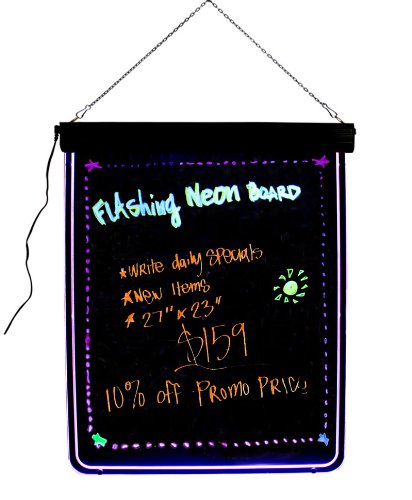 FLAshing Neon BOARD
*WRITE daily SPecials
*New Items
* 27" x 23"
$159
10% off PROMO PRICE